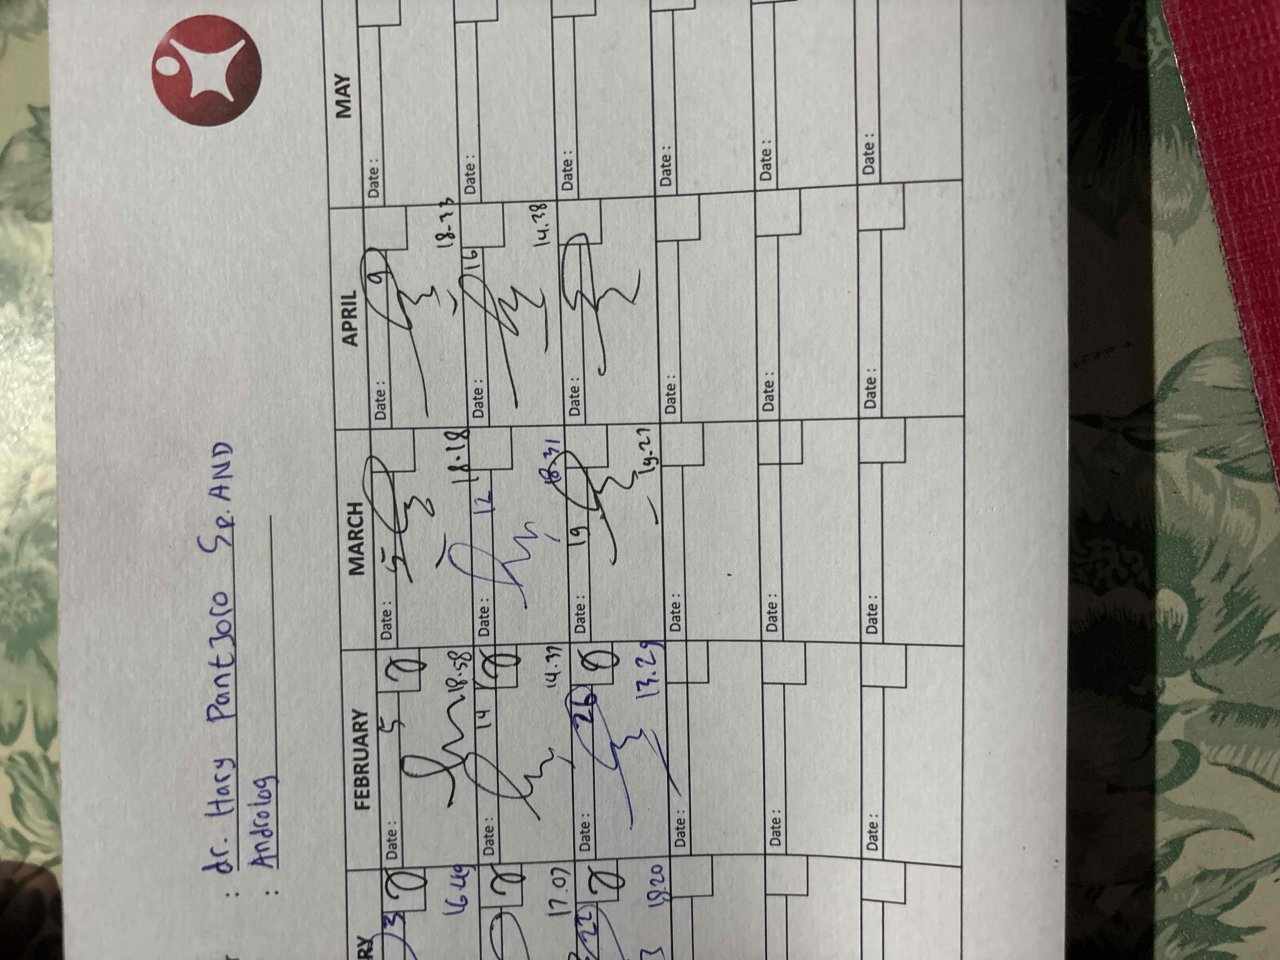 : dr. Hary Pantjoro Sp.AND
: Androlog
RY FEBRUARY MARCH APRIL MAY
3 Date : 5 Date : 5 Date : 9 Date :
16.49 18.58 18.18 18-33
Date : 14 Date : 12 Date : 16 Date :
17.07 14.37 18.31 14.38
22 Date : 26 Date : 19 Date : Date :
19.20 13.29 19.27
Date : Date : Date : Date :
Date : Date : Date : Date :
Date : Date : Date : Date :